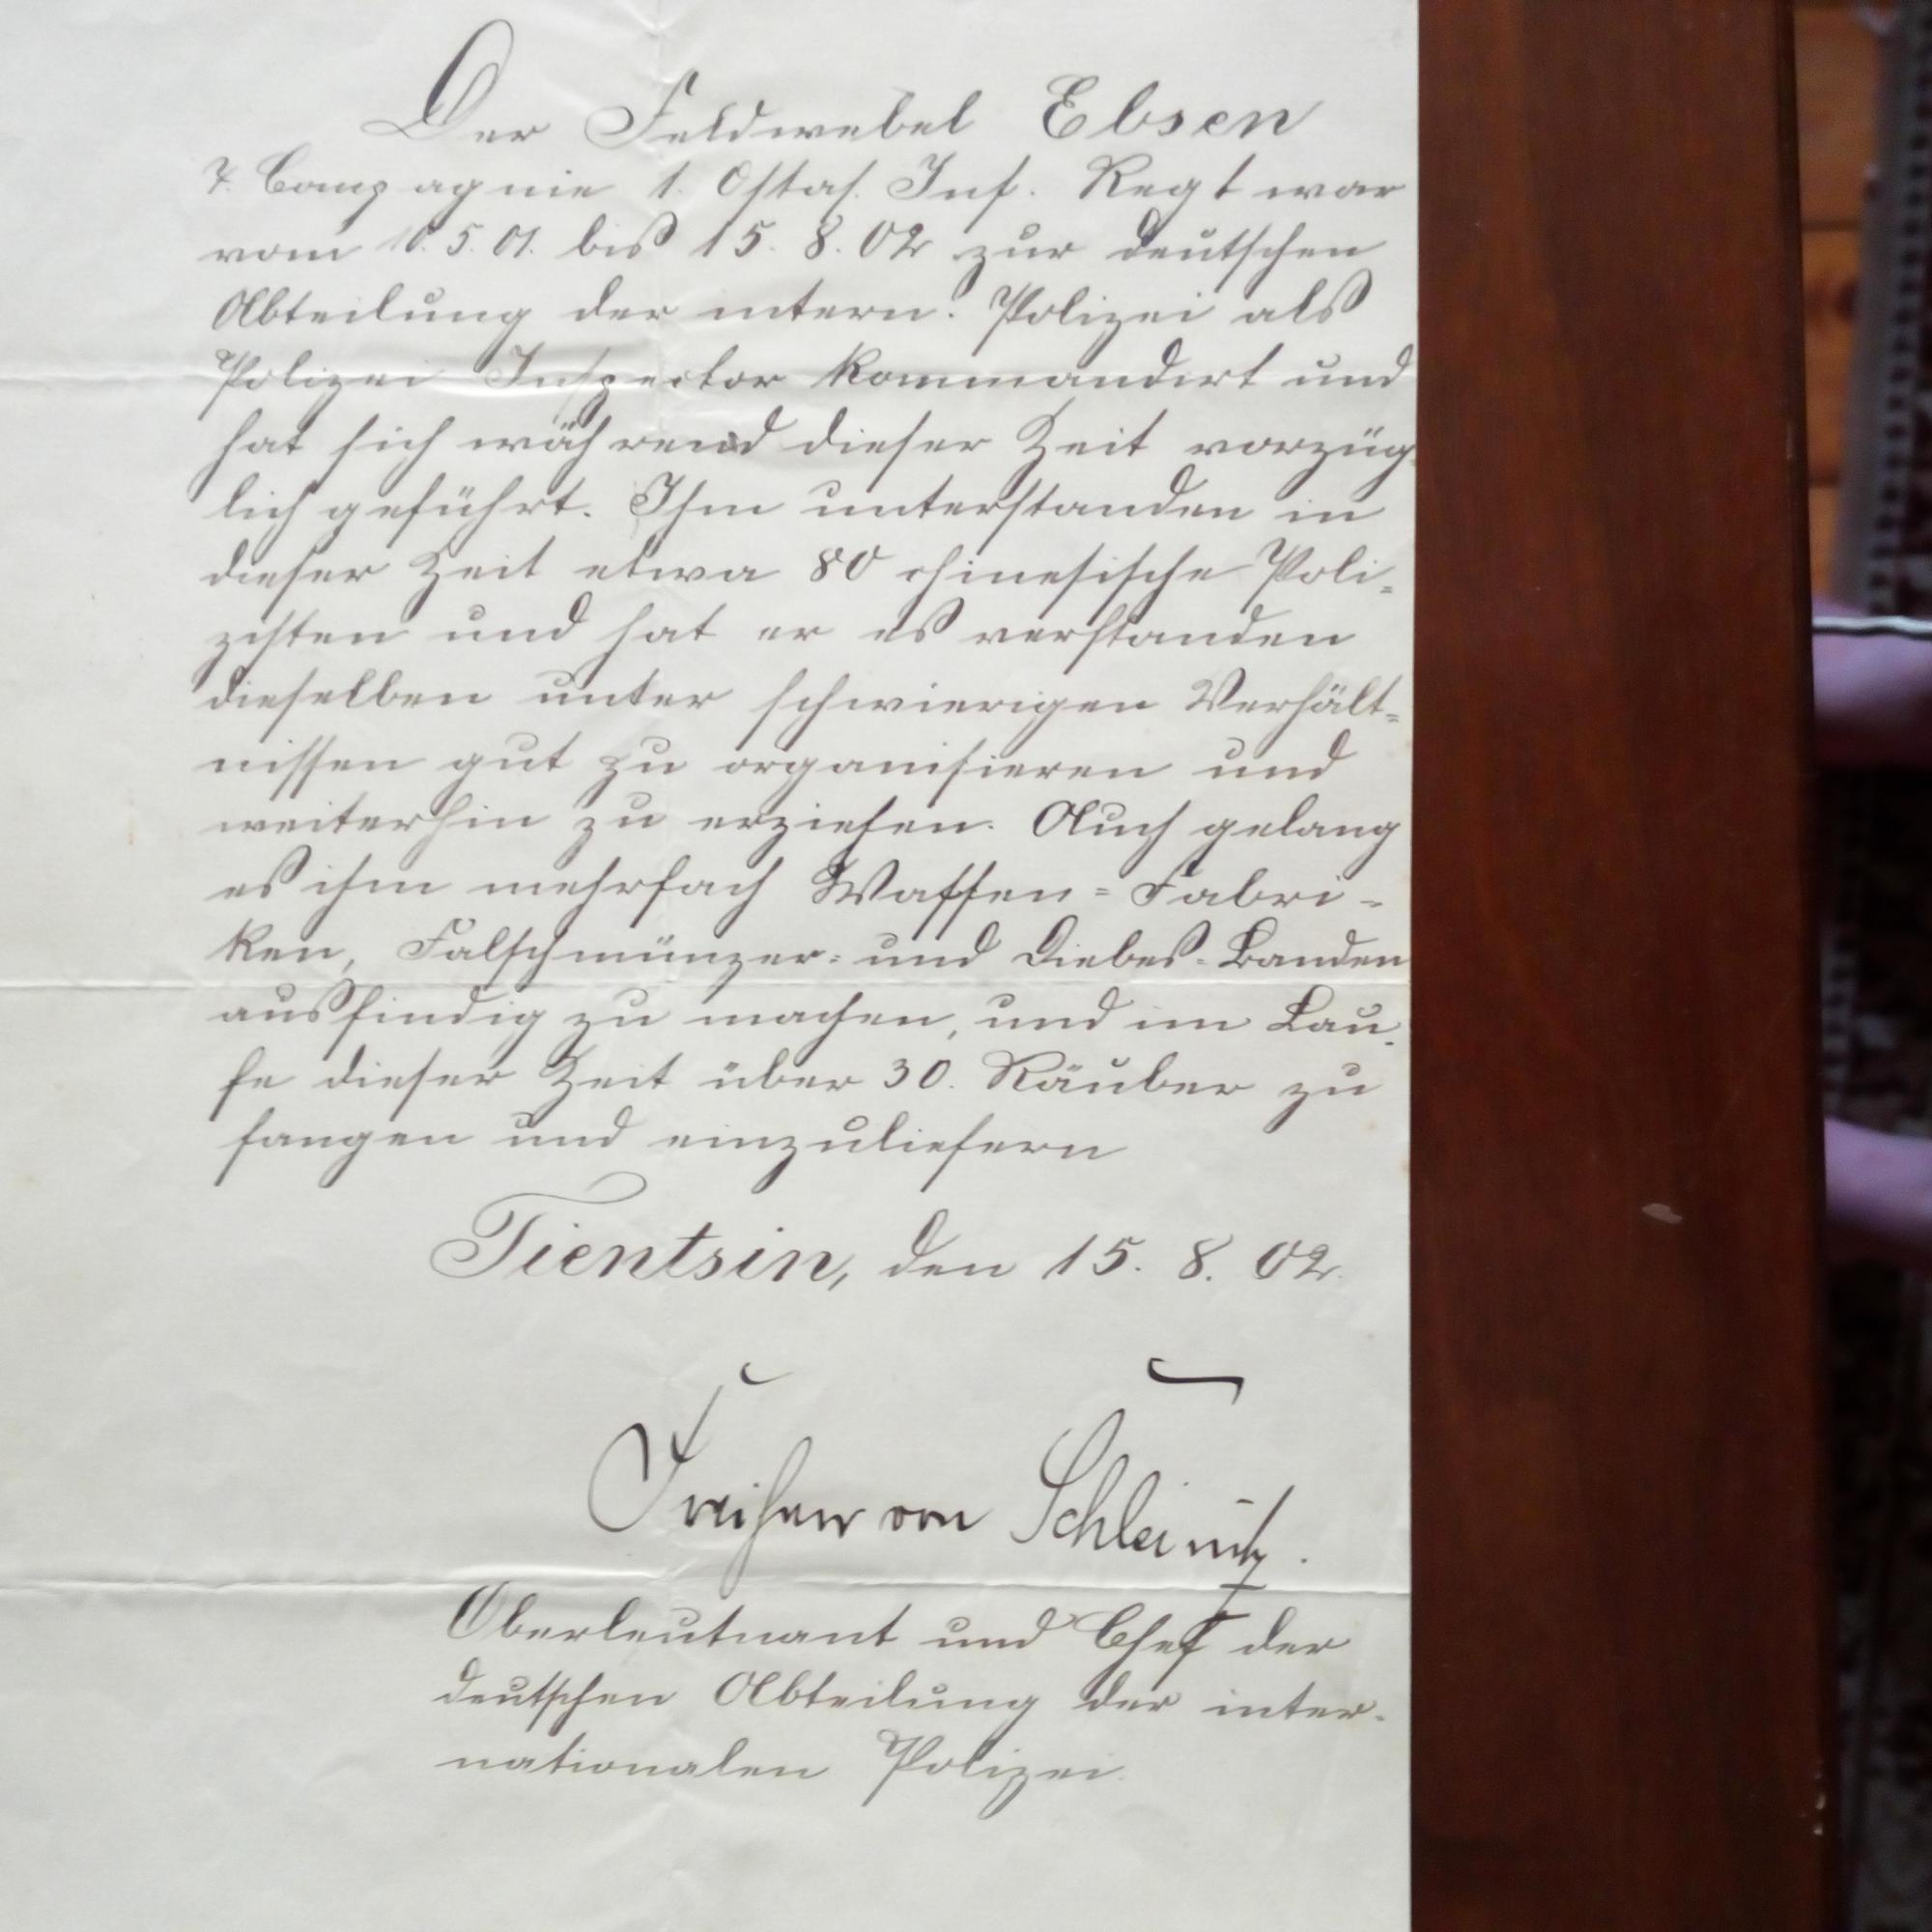 Der Feldwebel Ebsen
7. Compagnie 1. Ostas. Inf. Regt war
vom 10. 5. 01. bis 15. 8. 02 zur deutschen
Abteilung der intern. Polizei als
Polizei Inspector kommandirt und
hat sich während dieser Zeit vorzüg
lich geführt. Ihm unterstanden in
dieser Zeit etwa 80 chinesische Poli-
zisten und hat er es verstanden
dieselben unter schwierigen Verhält-
nissen gut zu organisieren und
weiterhin zu erziehen. Auch gelang
es ihm mehrfach Waffen-Fabri-
ken, Falschmünzer- und Diebes-Banden
ausfindig zu machen, und im Lau-
fe dieser Zeit über 30. Räuber zu
fangen und einzuliefern
Tientsin, den 15. 8. 02.
Freiherr von Schleinitz.
Oberleutnant und Chef der
deutschen Abteilung der inter-
nationalen Polizei.